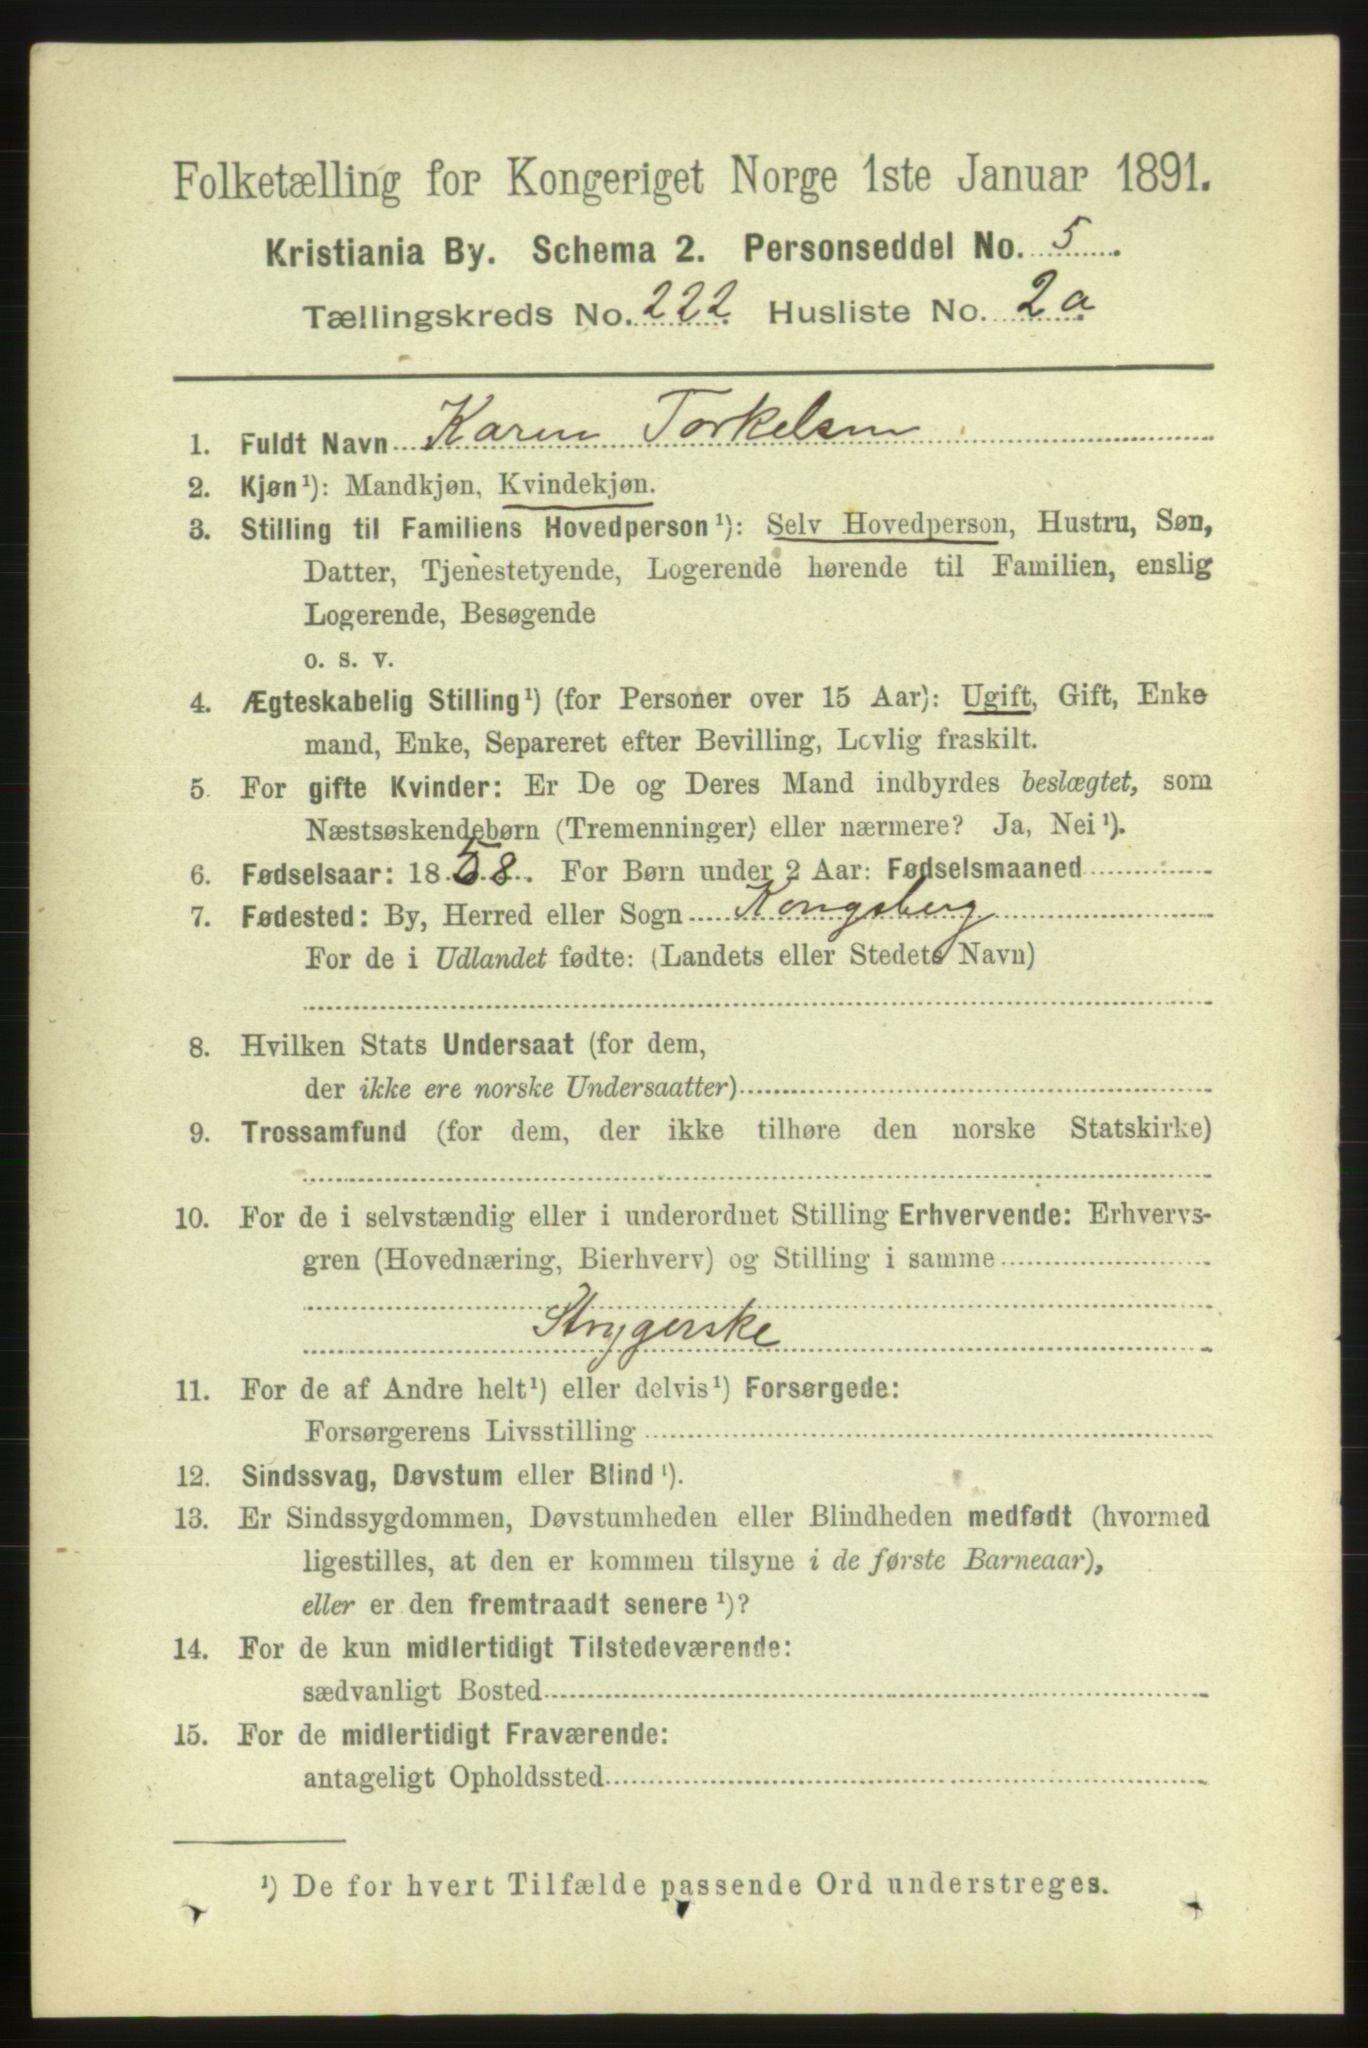 Folketælling for Kongeriget Norge 1ste Januar 1891.
Kristiania By. Schema 2. Personseddel No. 5
Tællingskreds No. 222 Husliste No. 2a
1. Fuldt Navn Karen Torkelsen
2. Kjøn¹): Mandkjøn, Kvindekjøn.
3. Stilling til Familiens Hovedperson¹): Selv Hovedperson, Hustru, Søn,
Datter, Tjenestetyende, Logerende hørende til Familien, enslig
Logerende, Besøgende
o. s. v.
4. Ægteskabelig Stilling¹) (for Personer over 15 Aar): Ugift, Gift, Enke
mand, Enke, Separeret efter Bevilling, Lovlig fraskilt.
5. For gifte Kvinder: Er De og Deres Mand indbyrdes beslægtet, som
Næstsøskendebørn (Tremenninger) eller nærmere? Ja, Nei¹).
6. Fødselsaar: 1858. For Børn under 2 Aar: Fødselsmaaned
7. Fødested: By, Herred eller Sogn Kongsberg
For de i Udlandet fødte: (Landets eller Stedets Navn)
8. Hvilken Stats Undersaat (for dem,
der ikke ere norske Undersaatter)
9. Trossamfund (for dem, der ikke tilhøre den norske Statskirke)
10. For de i selvstændig eller i underordnet Stilling Erhvervende: Erhvervs-
gren (Hovednæring, Bierhverv) og Stilling i samme
Strygerske
11. For de af Andre helt¹) eller delvis¹) Forsørgede:
Forsørgerens Livsstilling
12. Sindssvag, Døvstum eller Blind¹).
13. Er Sindssygdommen, Døvstumheden eller Blindheden medfødt (hvormed
ligestilles, at den er kommen tilsyne i de første Barneaar),
eller er den fremtraadt senere¹)?
14. For de kun midlertidigt Tilstedeværende:
sædvanligt Bosted
15. For de midlertidigt Fraværende:
antageligt Opholdssted
¹) De for hvert Tilfælde passende Ord understreges.